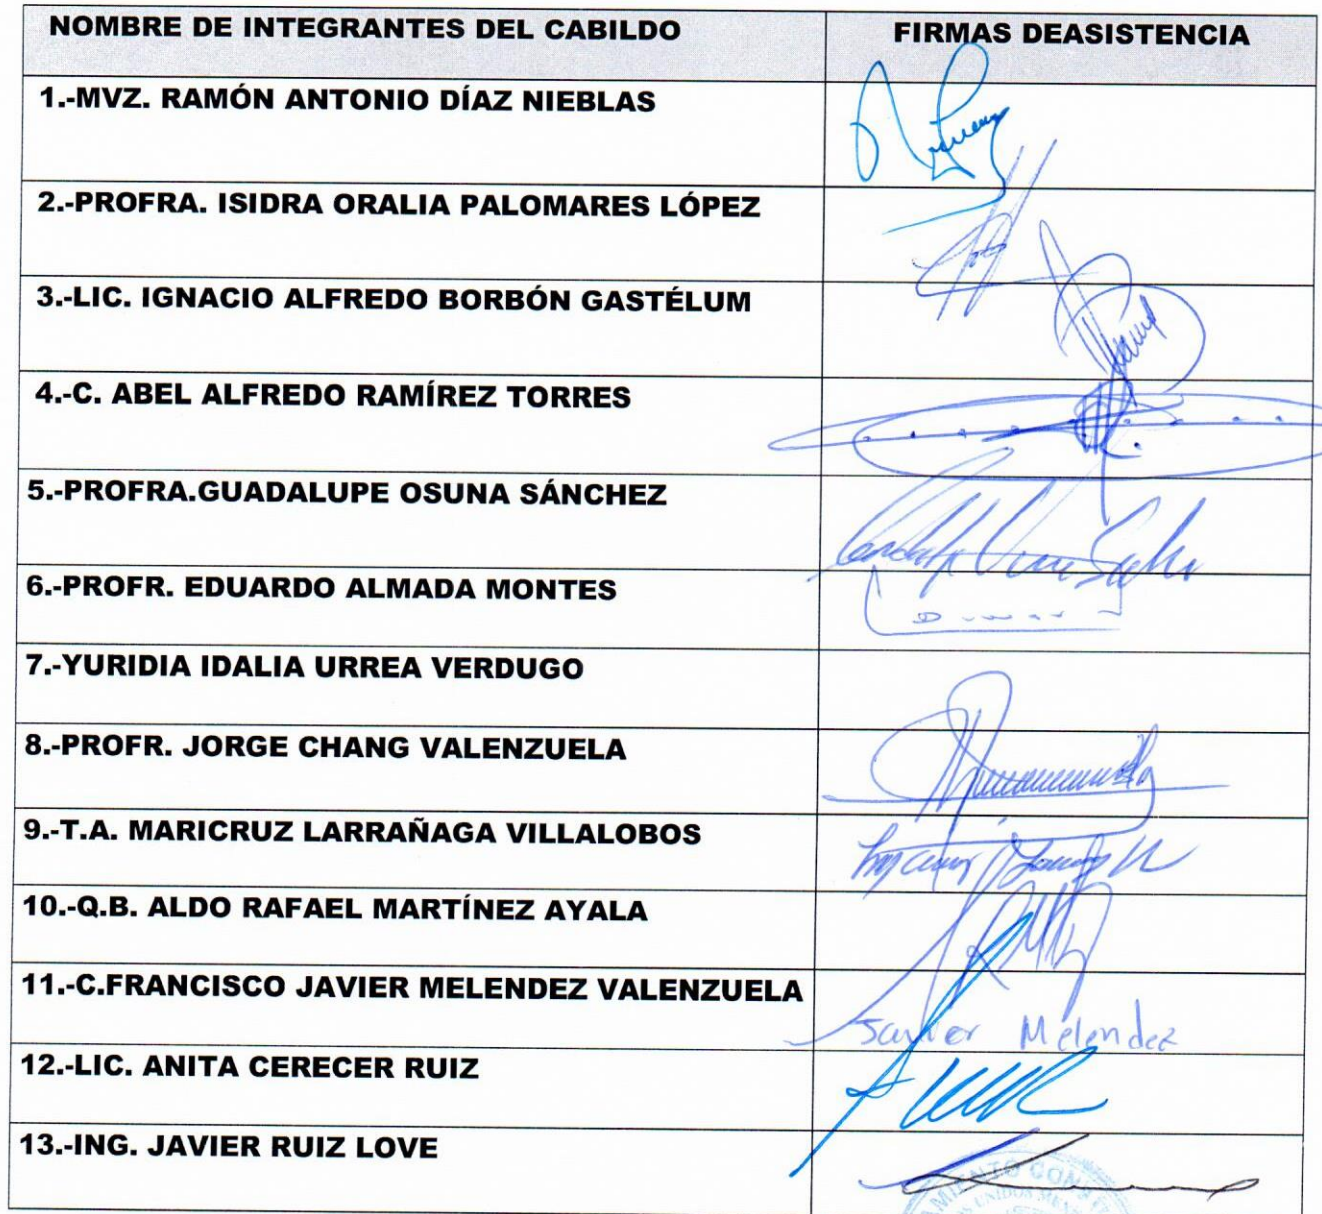 NOMBRE DE INTEGRANTES DEL CABILDO FIRMAS DEASISTENCIA
1.-MVZ. RAMÓN ANTONIO DÍAZ NIEBLAS
2.-PROFRA. ISIDRA ORALIA PALOMARES LÓPEZ
3.-LIC. IGNACIO ALFREDO BORBÓN GASTÉLUM
4.-C. ABEL ALFREDO RAMÍREZ TORRES
5.-PROFRA.GUADALUPE OSUNA SÁNCHEZ
6.-PROFR. EDUARDO ALMADA MONTES
7.-YURIDIA IDALIA URREA VERDUGO
8.-PROFR. JORGE CHANG VALENZUELA
9.-T.A. MARICRUZ LARRAÑAGA VILLALOBOS
10.-Q.B. ALDO RAFAEL MARTÍNEZ AYALA
11.-C.FRANCISCO JAVIER MELENDEZ VALENZUELA
Javier Melendez
12.-LIC. ANITA CERECER RUIZ
13.-ING. JAVIER RUIZ LOVE
UNIDOS